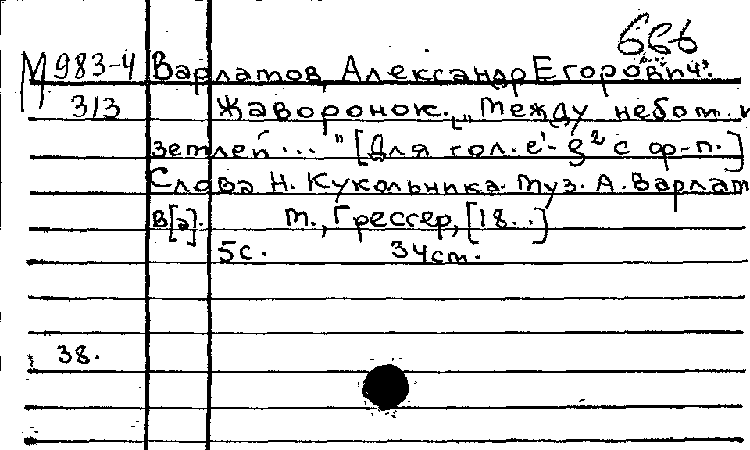 666
М 983-4 Варламов, Александр Егорович.
313 Жаворонок. „Между небом и
землей ... " [Для гол. e¹-g² с ф-п.]
Слова Н. Кукольника. Муз. А. Варлам
в[а]. М., Грессер, [18..]
5с. 34см.
38.